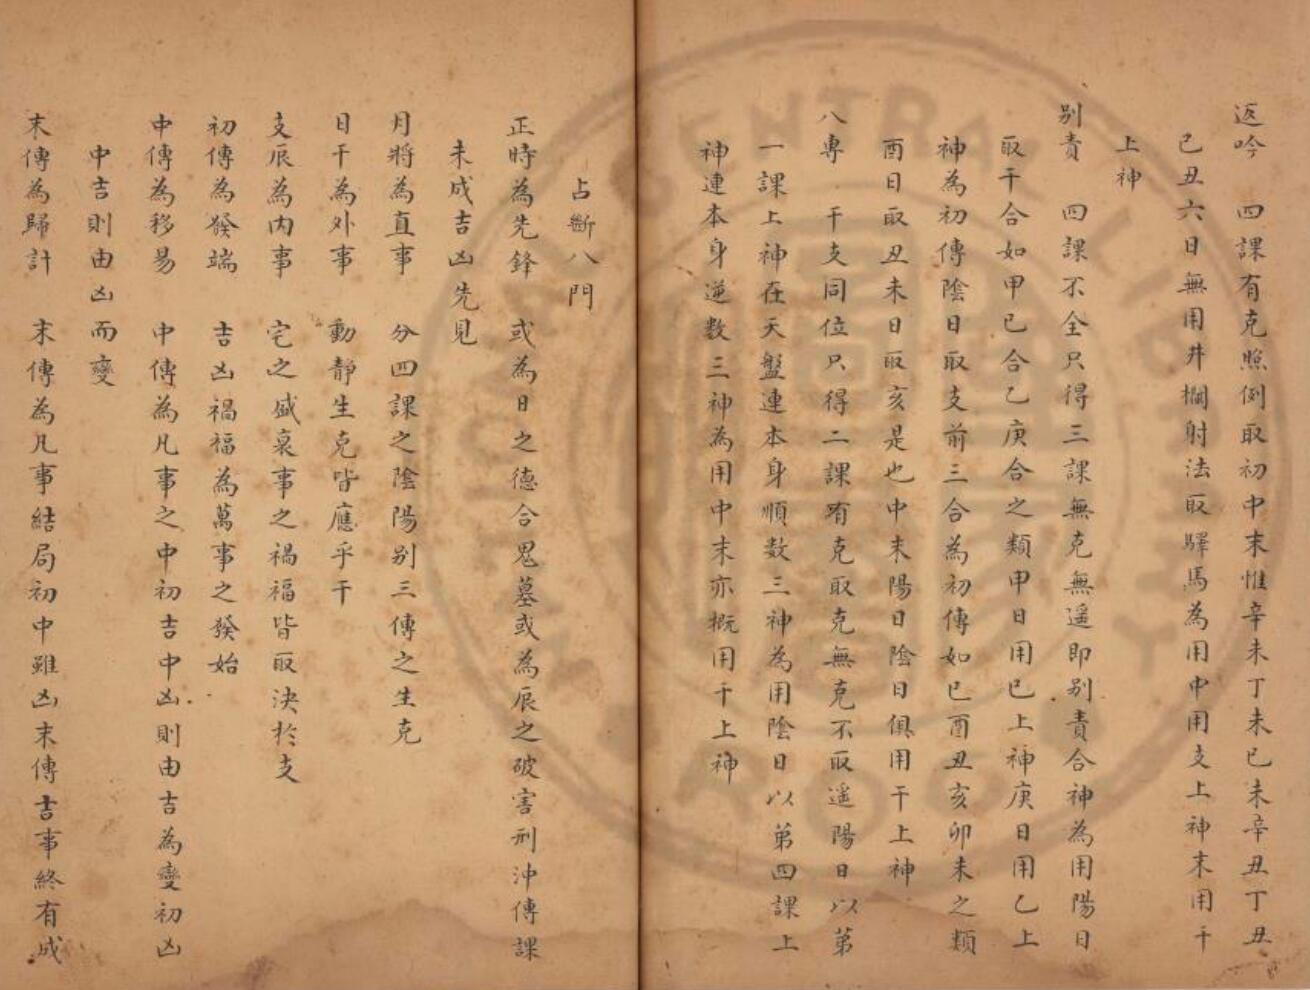 返吟　四課有克照例取初中末惟辛未丁未已未辛丑丁丑
已丑六日無用井欄射法取驛馬為用中用支上神末用干
上神
別責　四課不全只得三課無克無遥即別責合神為用陽日
取干合如甲已合乙庚合之類甲日用已上神庚日用乙上
神為初傳陰日取支前三合為初傳如已酉丑亥卯未之類
酉日取丑未日取亥是也中末陽日陰日俱用干上神
八專　干支同位只得二課有克取克無克不取遥陽日以第
一課上神在天盤連本身順数三神為用陰日以第四課上
神連本身逆数三神為用中末亦概用干上神
占斷八門
正時為先鋒　或為日之德合鬼墓或為辰之破害刑沖傳課
未成吉凶先見
月將為直事　分四課之陰陽别三傳之生克
日干為外事　動靜生克皆應乎干
支辰為内事　宅之盛衰事之禍福皆取決於支
初傳為發端　吉凶禍福為萬事之發始
中傳為移易　中傳為凡事之中初吉中凶則由吉為變初凶
中吉則由凶而變
末傳為歸計　末傳為凡事結局初中雖凶末傳吉事終有成
CENTRAL LIBRARY